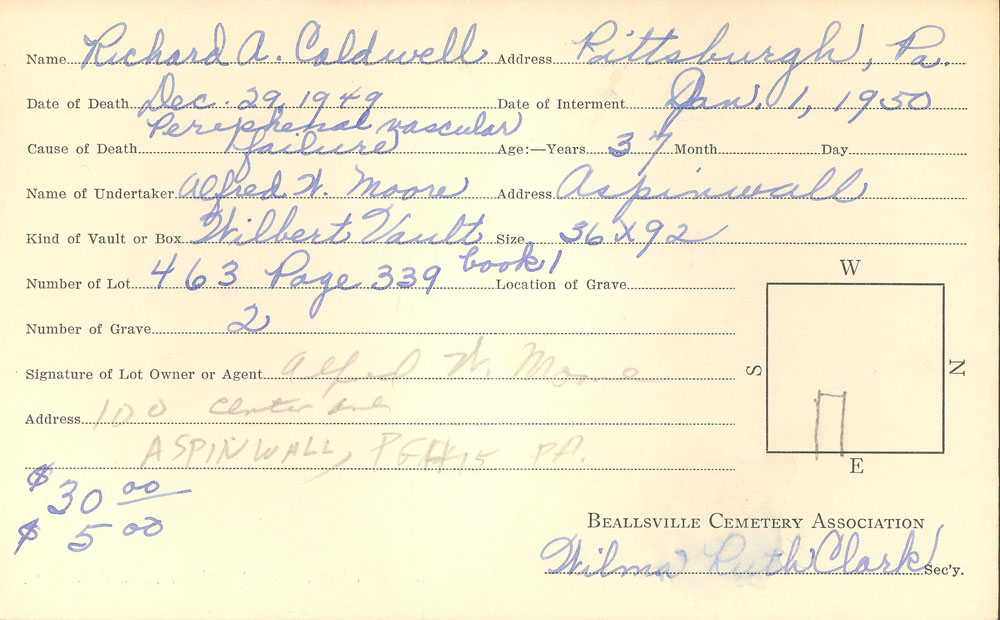 Name Richard A. Caldwell Address Pittsburgh, Pa.
Date of Death Dec. 29, 1949 Date of Interment Jan. 1, 1950
Peripheral vascular
Cause of Death failure Age:—Years 37 Month Day
Name of Undertaker Alfred W. Moore Address Aspinwall
Kind of Vault or Box Wilbert Vault Size 36 x 92
Number of Lot 463 Page 339 book 1 Location of Grave
W
Number of Grave 2
S
N
Signature of Lot Owner or Agent Alfred W. Moore
Address 100 Center Ave
ASPINWALL, PGH 15 PA.
E
$ 30 00
$ 5 00
BEALLSVILLE CEMETERY ASSOCIATION
Wilma Ruth Clark Sec'y.